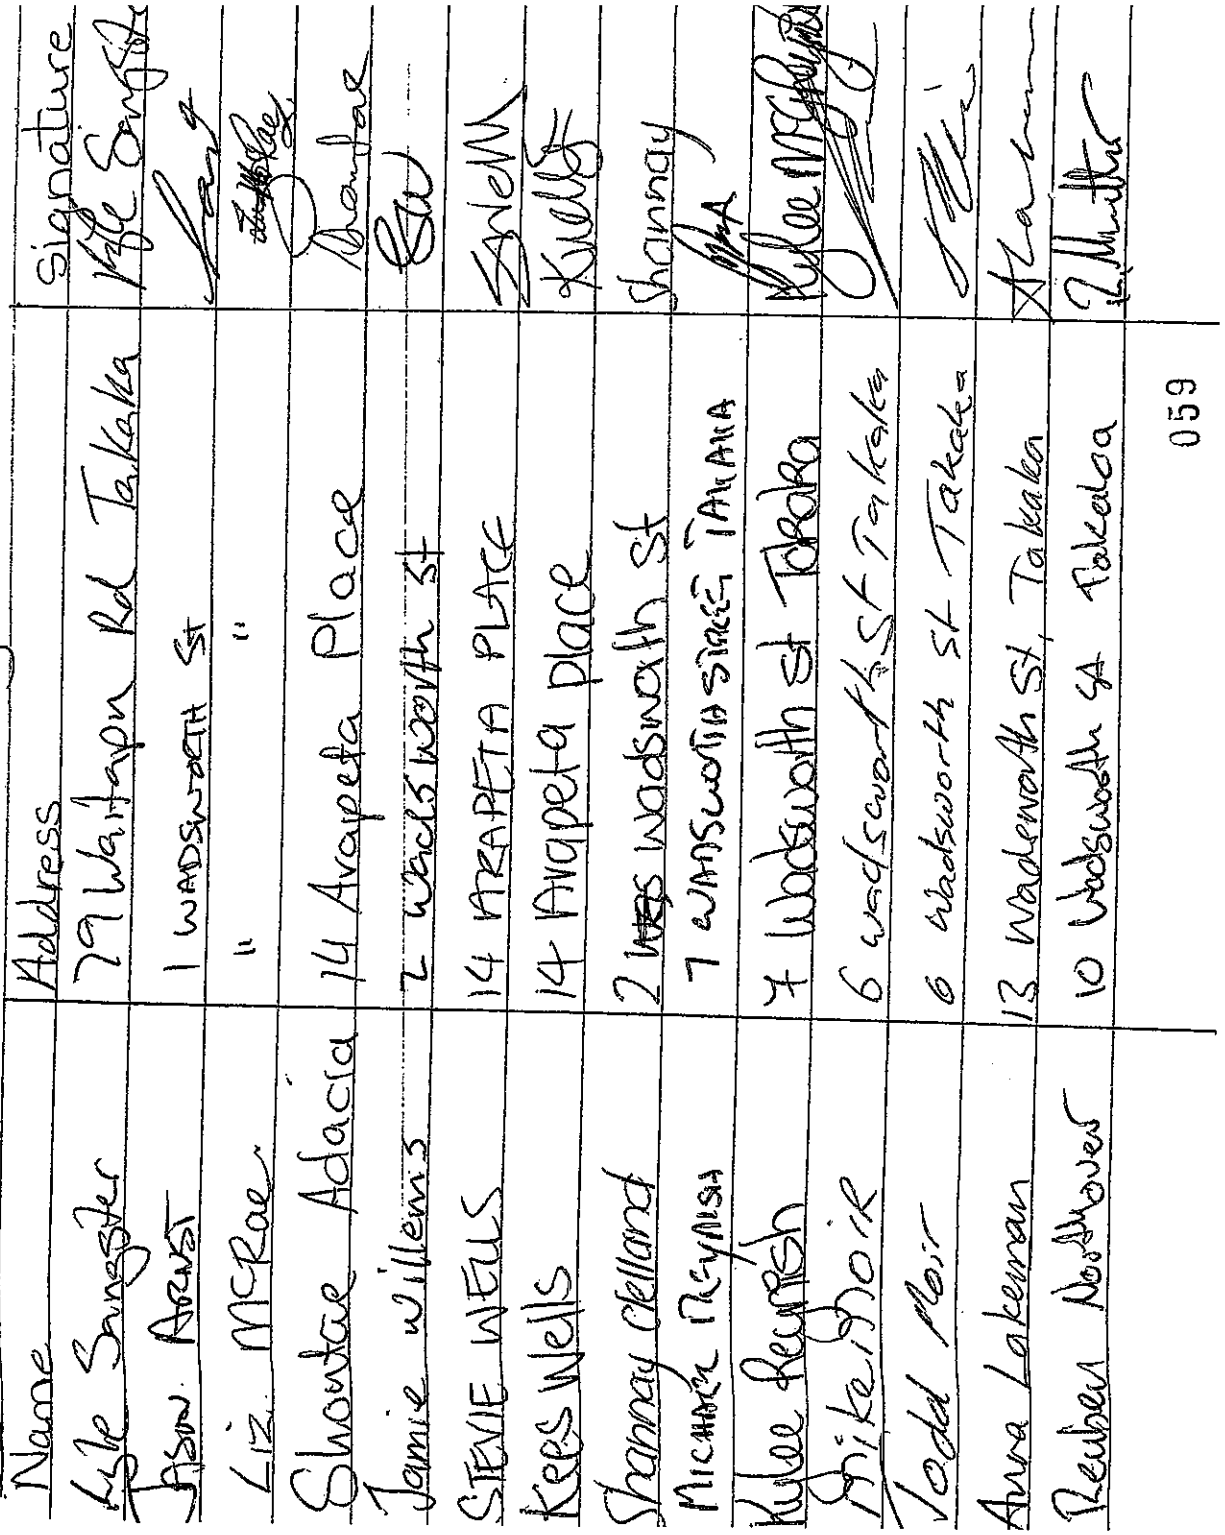 Name Address Signature
Kyle Sangster 79 Waitapu Rd Takaka Kyle Sangster
Jason Arndt 1 WADSWORTH St
Liz McRae " "
Shantae Adacia 14 Arapeta Place Shantae
Jamie Willems 2 Wadsworth St
STEVIE WELLS 14 ARAPETA PLACE SWells
Kees Wells 14 Arapeta place KWells
Shannay Clelland 2 Wadswoth St Shannay
MICHAEL 7 WADSWORTH STREET TAKAKA
Kylee 7 Wadsworth St Takaka Kylee
Mike Moir 6 wadsworth St Takaka
Todd Moir 6 Wadsworth St Takaka
Anna Lakeman 13 Wadsworth St, Takaka
Reuben Northover 10 Wadsworth St Takaka
059